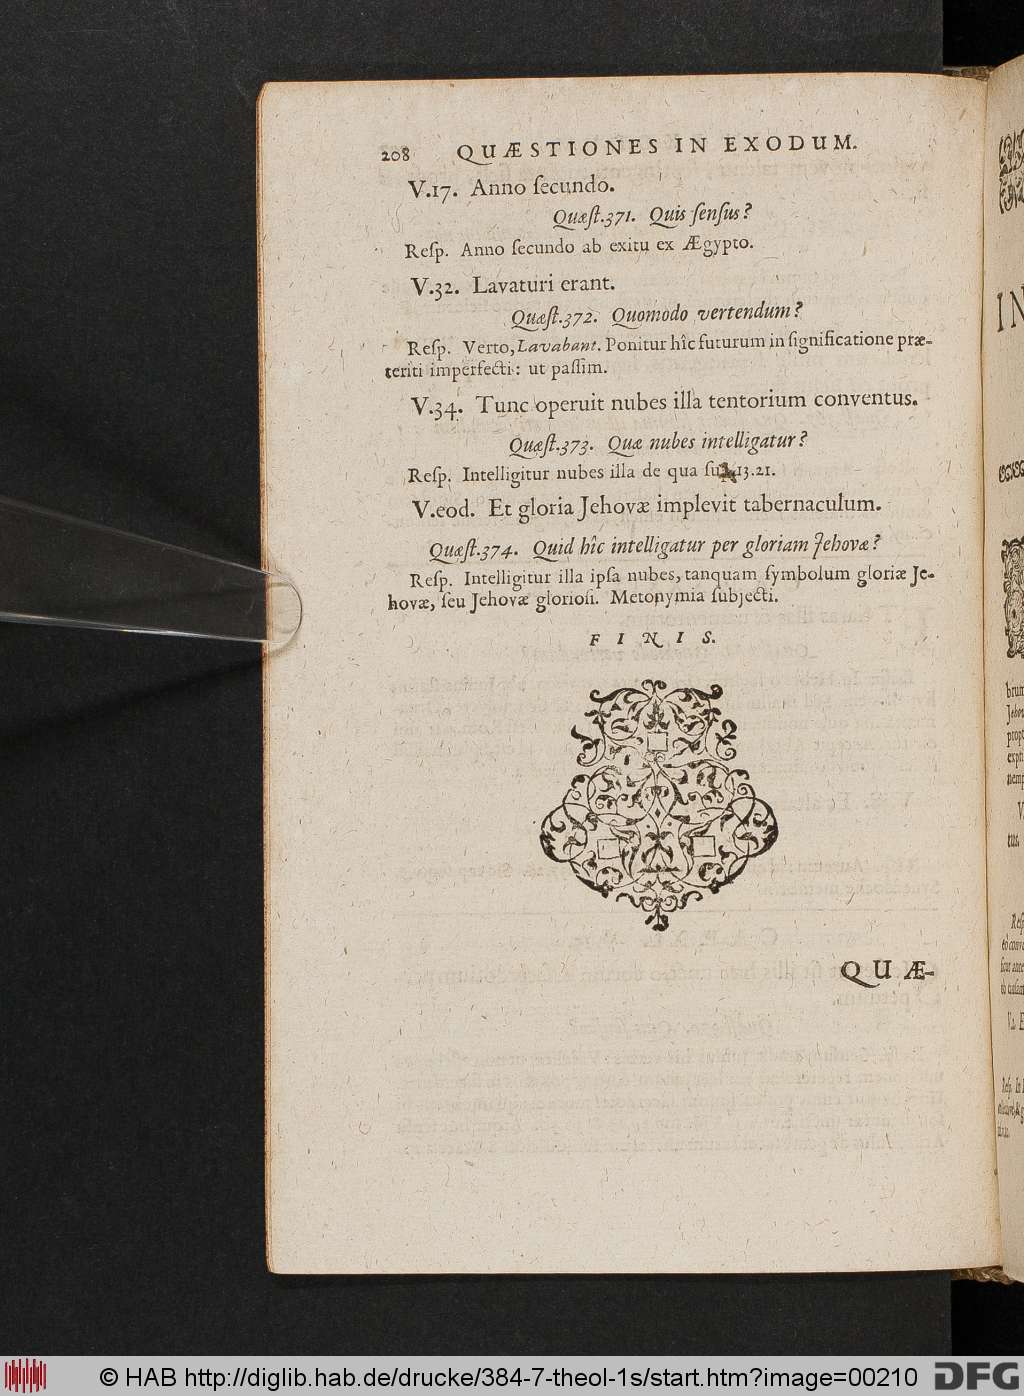 208 QUÆSTIONES IN EXODUM.
V.17. Anno ſecundo.
Quæſt.371. Quis ſenſus?
Reſp. Anno ſecundo ab exitu ex Ægypto.
V.32. Lavaturi erant.
Quæſt.372. Quomodo vertendum?
Reſp. Verto, Lavabant. Ponitur hîc futurum in ſignificatione præ-
teriti imperfecti: ut paſſim.
V.34. Tunc operuit nubes illa tentorium conventus.
Quæſt.373. Quæ nubes intelligatur?
Reſp. Intelligitur nubes illa de qua 13.21.
V.eod. Et gloria Jehovæ implevit tabernaculum.
Quæſt.374. Quid hîc intelligatur per gloriam Jehovæ?
Reſp. Intelligitur illa ipſa nubes, tanquam ſymbolum gloriæ Je-
hovæ, ſeu Jehovæ glorioſi. Metonymia ſubjecti.
FINIS.
QUÆ-
IN
© HAB http://diglib.hab.de/drucke/384-7-theol-1s/start.htm?image=00210
DFG